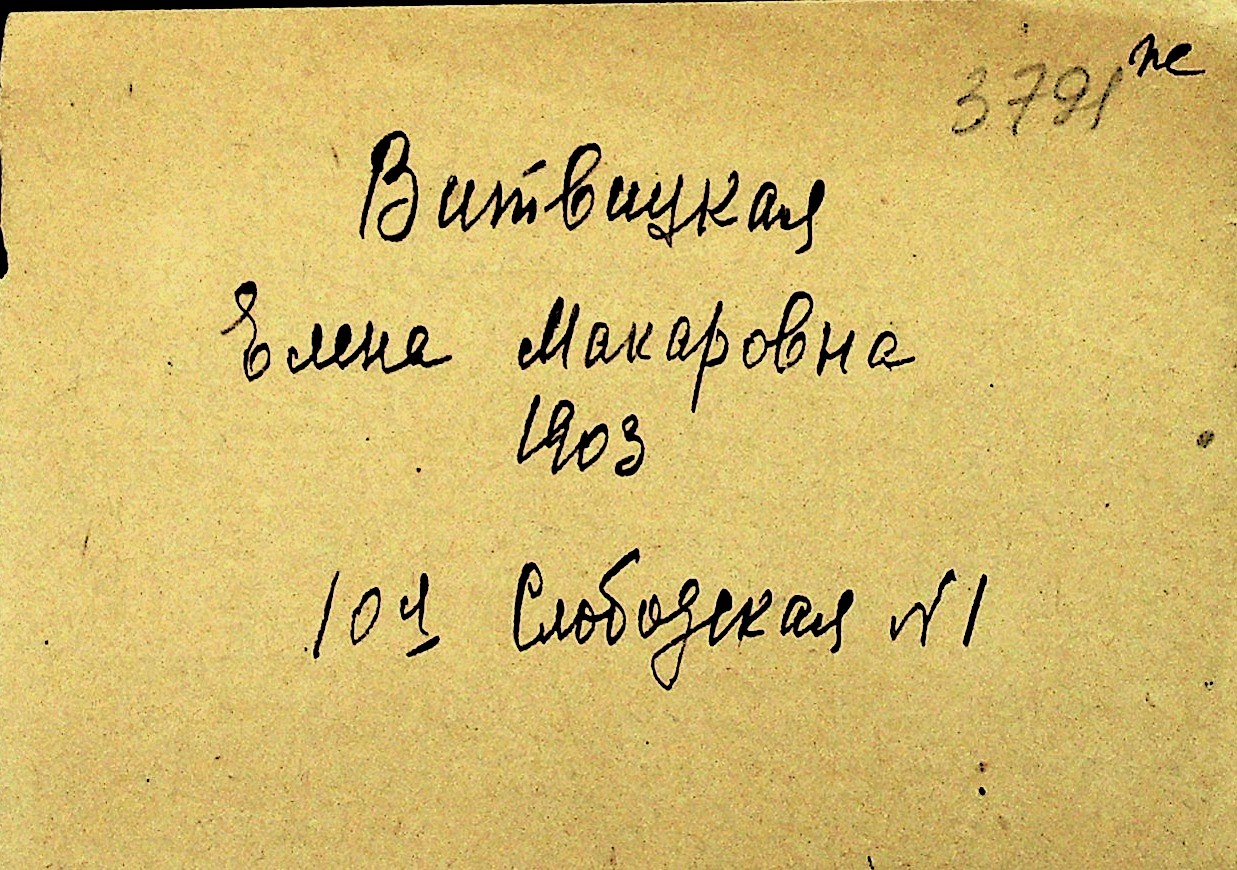 3791 пе
Витвицкая
Елена Макаровна
1903
10я Слободская №1